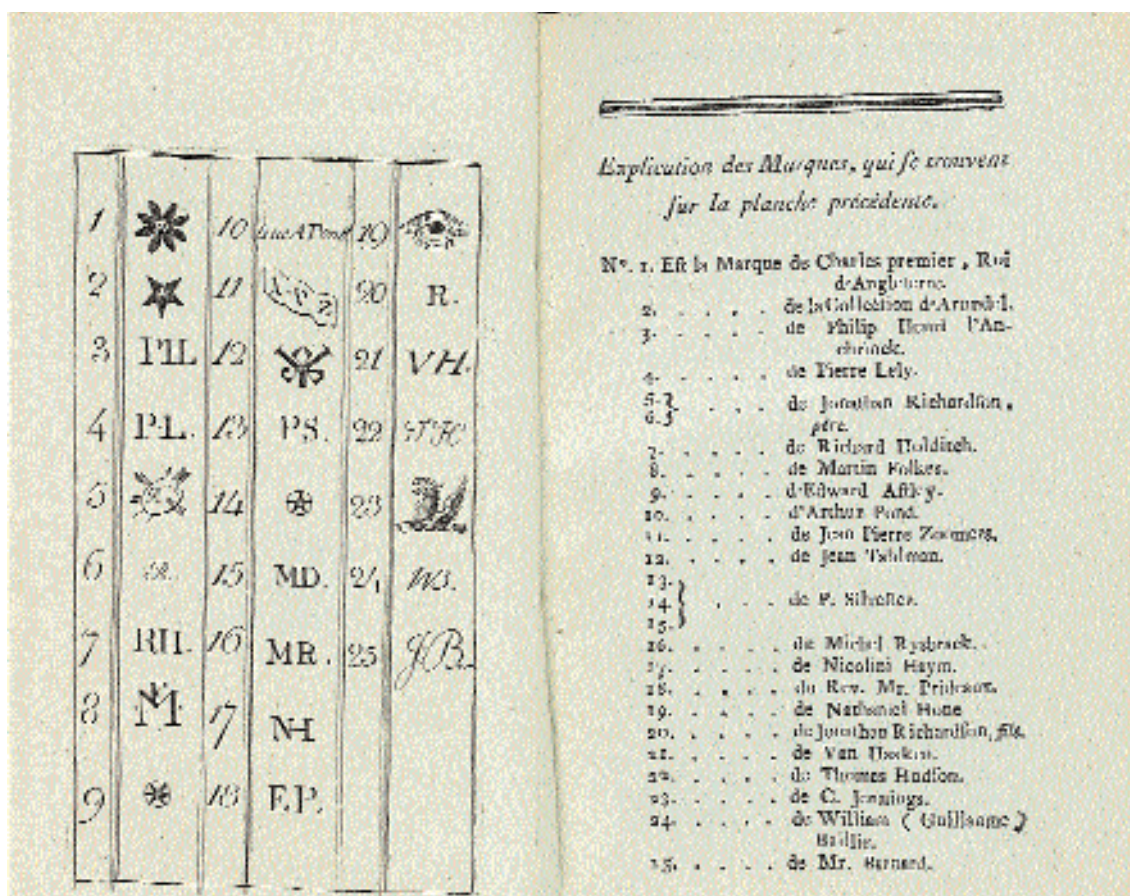 1
2
3
P.L.
4
5
6
R.
7
RH.
8
M
9
10
11
12
13
P.S.
14
15
MD.
16
MR.
17
NH
18
E.P.
19
20
R.
21
VH.
22
TH
23
24
WB.
25
JB.
Explication des Marques, qui ſe trouvent
ſur la planche précédente.
N°. 1. Eſt la Marque de Charles premier, Roi
d'Angleterre.
2. . . . . de la Collection d'Arundel.
3. . . . . de Philip Henri
4. . . . . de Pierre Lely.
5. } . . . . de Jonathan Richardſon,
6. } père.
7. . . . . de Richard Holditch.
8. . . . . de Martin Folkes.
9. . . . . d'Edward Aſtley.
10. . . . . d'Arthur Pond.
11. . . . . de Jean Pierre Zoomers.
12. . . . . de Jean
13. }
14. } . . . de P.
15. }
16. . . . . de Michel Rysbrack.
17. . . . . de Nicolini Haym.
18. . . . . du Rev. Mr.
19. . . . . de Nathaniel Hone
20. . . . . de Jonathan Richardſon, fils.
21. . . . . de Van
22. . . . . de Thomas Hudſon.
23. . . . . de C. Jennings.
24. . . . . de William ( Guillaume )
Baillie.
25. . . . . de Mr. Barnard.